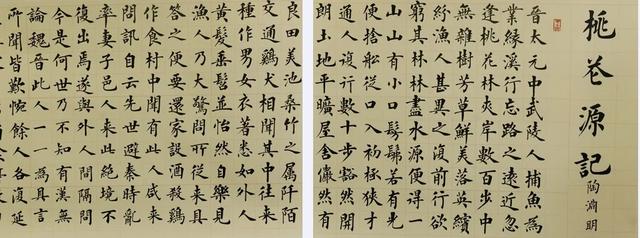 桃花源記
陶淵明
晉太元中武陵人捕魚為
業緣溪行忘路之遠近忽
逢桃花林夾岸數百步中
無雜樹芳草鮮美落英繽
紛漁人甚異之復前行欲
窮其林林盡水源便得一
山山有小口髣髴若有光
便捨船從口入初極狹才
通人復行數十步豁然開
朗土地平曠屋舍儼然有
良田美池桑竹之屬阡陌
交通鷄犬相聞其中往來
種作男女衣著悉如外人
黃髮垂髫並怡然自樂見
漁人乃大驚問所從來具
答之便要還家設酒殺鷄
作食村中聞有此人咸來
問訊自云先世避秦時亂
率妻子邑人來此絕境不
復出焉遂與外人間隔問
今是何世乃不知有漢無
論魏晉此人一一為具言
所聞皆歎惋餘人各復延